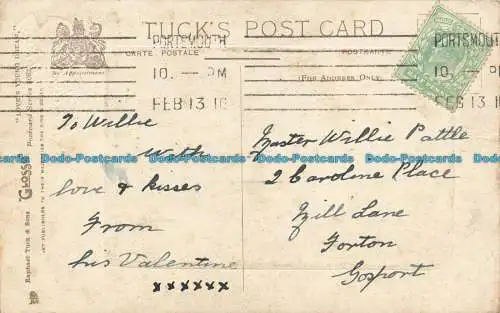 TUCK'S POST CARD
CARTE POSTALE
POSTKARTE
(FOR ADDRESS ONLY)
By Appointment
PORTSMOUTH
10. — PM
FEB 13 10
PORTSMOUTH
10. — PM
FEB 13 10
To Willie
With
love & kisses
From
his Valentine
xxxxxx
Master Willie Pattle
2 Caroline Place
Mill Lane
Forton
Gosport
Raphael Tuck & Sons
"GLOSSO"
Postcard Series
Dodo-Postcards Dodo-Postcards Dodo-Postcards Dodo-Postcards Dodo-Postcards
Dodo-Postcards Dodo-Postcards Dodo-Postcards Dodo-Postcards Dodo-Postcards